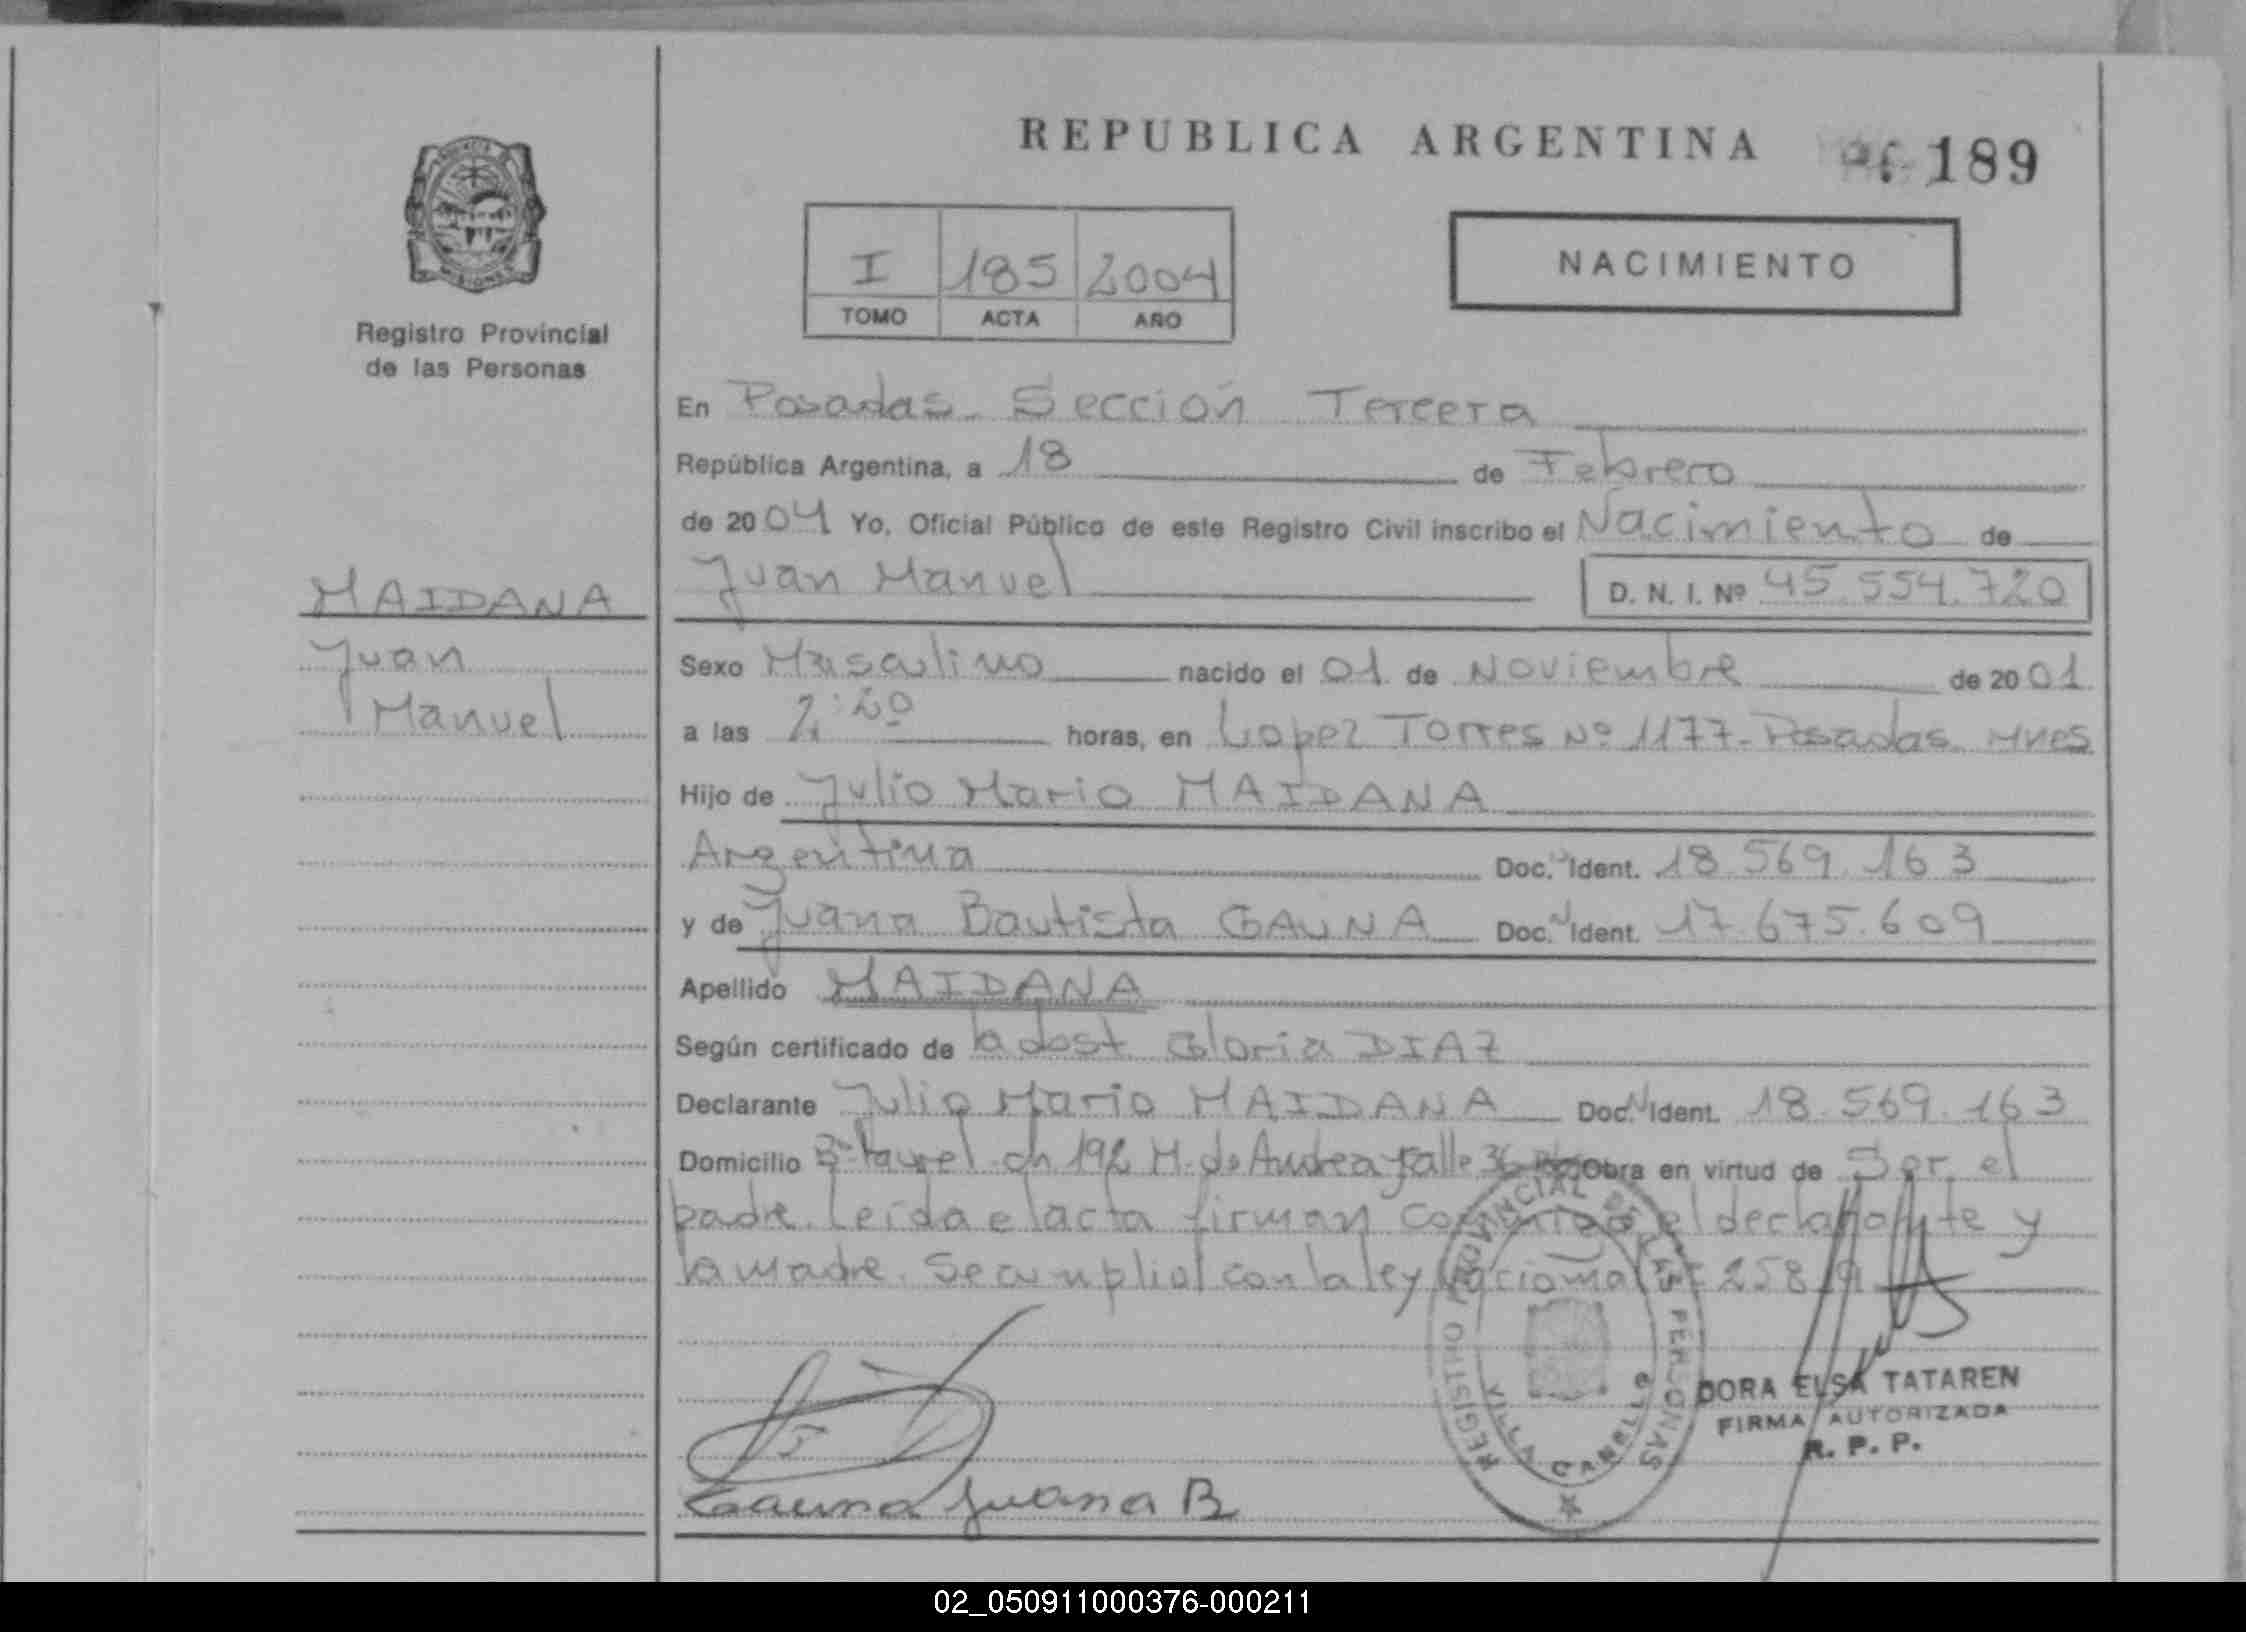 REPUBLICA ARGENTINA
189
I 185 2004
TOMO ACTA AÑO
NACIMIENTO
Registro Provincial
de las Personas
En Posadas Sección Tercera
República Argentina, a 18 de Febrero
de 2004 Yo, Oficial Público de este Registro Civil inscribo el Nacimiento de
Juan Manuel D. N. I. Nº 45.554.720
MAIDANA
Juan
Manuel
Sexo Masculino nacido el 01 de Noviembre de 2001
a las 2:20 horas, en Lopez Torres Nº 1177 - Posadas Mnes
Hijo de Julio Mario MAIDANA
Argentina Doc. Ident. 18.569.163
y de Juana Bautista GAUNA Doc. Ident. 17.675.609
Apellido MAIDANA
Según certificado de la obst. Gloria DIAZ
Declarante Julio Mario MAIDANA Doc. Ident. 18.569.163
Domicilio ch 192 M. de Andrea y calle 36 Obra en virtud de Ser el
padre. Leída el acta firman conmigo el declarante y
la madre. Se cumplió con la ley nacional
REGISTRO PROVINCIAL DE LAS PERSONAS
VILLA
DORA ELSA TATAREN
FIRMA AUTORIZADA
R. P. P.
Gauna Juana B
02_050911000376-000211